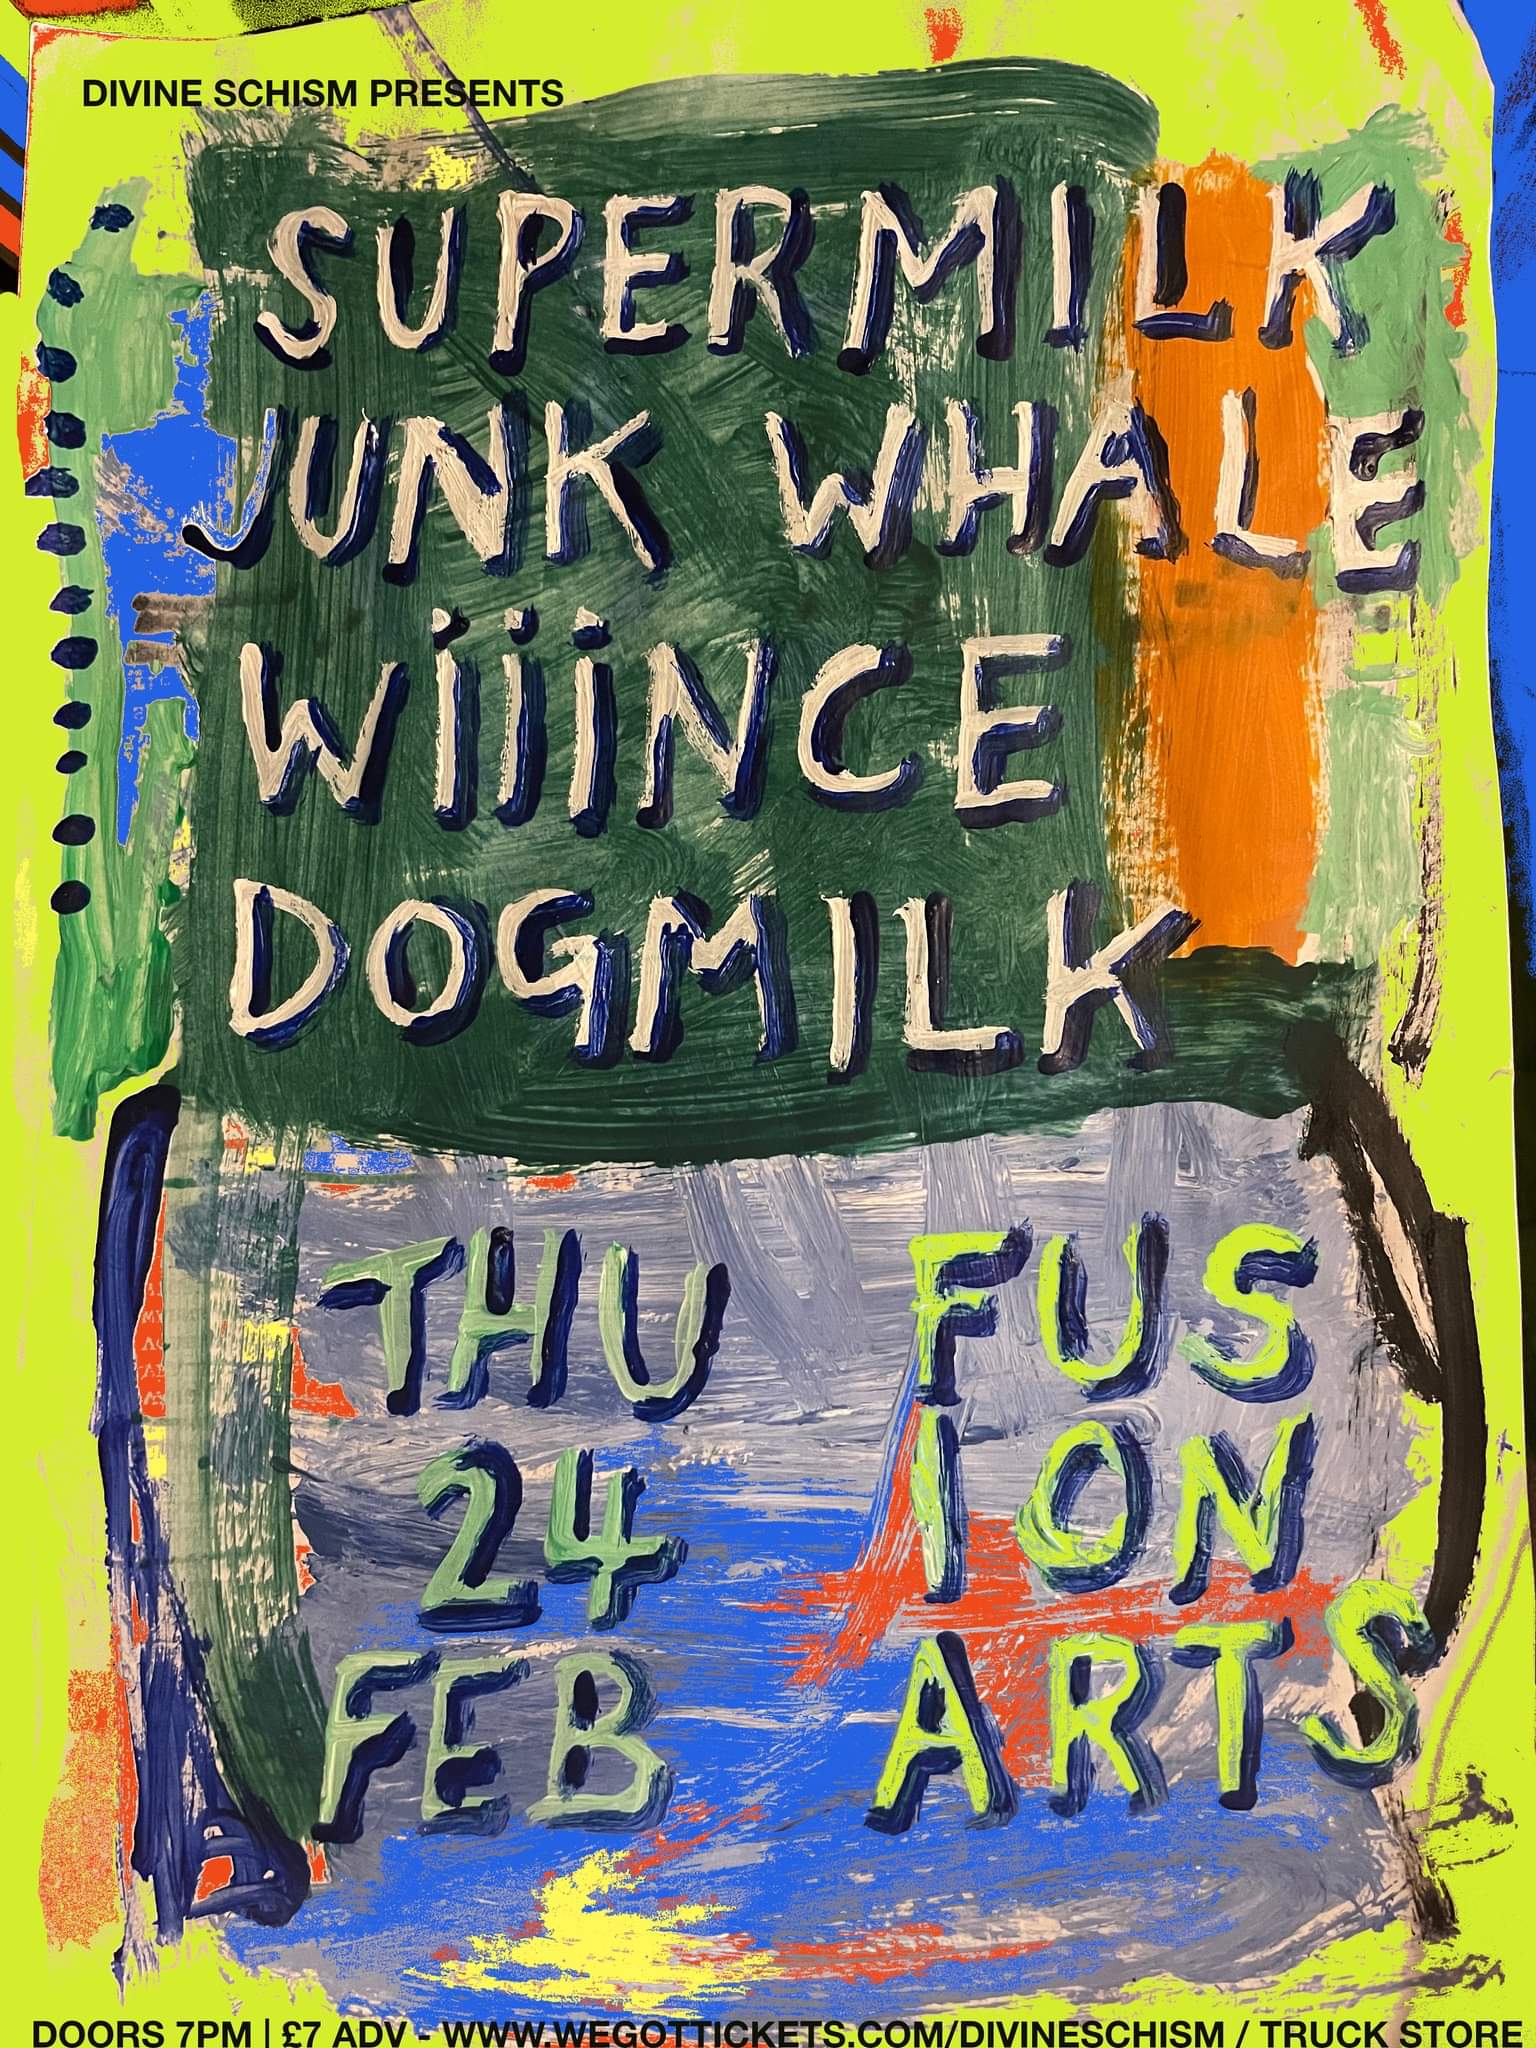 DIVINE SCHISM PRESENTS
SUPERMILK
JUNK WHALE
WiiiNCE
DOGMILK
THU
24
FEB
FUS
ION
ARTS
DOORS 7PM | £7 ADV - WWW.WEGOTTICKETS.COM/DIVINESCHISM / TRUCK STORE